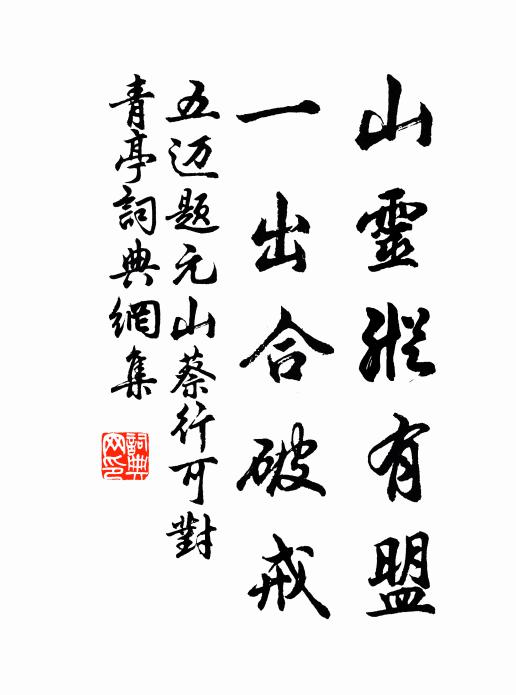 山靈縱有盟
一出合破戒
五迈题元山蔡行可對
青亭詞典網集
詞典網印